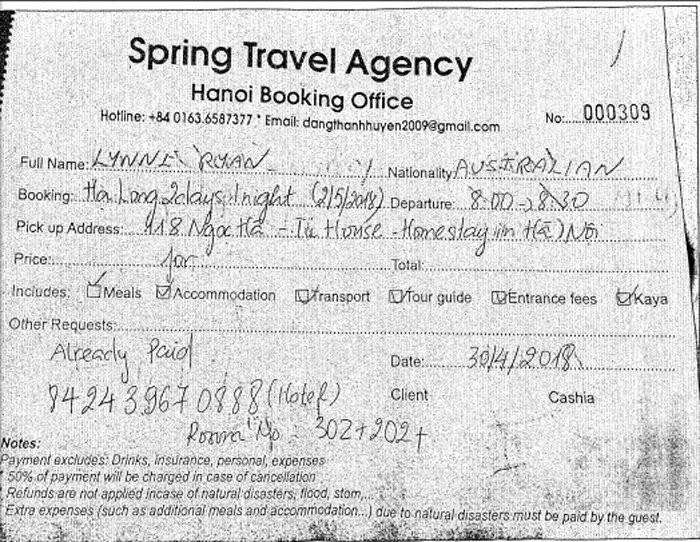 Spring Travel Agency
Hanoi Booking Office
Hotline: +84 0163.6587377 * Email: dangthanhhuyen2009@gmail.com
No:.....000309
Full Name: LYNNE RYAN Nationality AUSTRALIAN
Booking: Ha Long 2days 1night (2/5/2018) Departure: 8:00 -> 8:30
Pick up Address: 418 Ngoc Hà - Tü House - Homestay in Hà Nội
Price: for Total:
Includes: Meals Accommodation Transport Tour guide Entrance fees Kaya
Other Requests:
Already Paid Date: 30/4/2018
84243967 0888 (Hotel) Client Cashia
Room No: 302+202+
Notes:
Payment excludes: Drinks, insurance, personal, expenses
* 50% of payment will be charged in case of cancellation
* Refunds are not applied incase of natural disasters, flood, stom,...
* Extra expenses (such as additional meals and accommodation...) due to natural disasters must be paid by the guest.